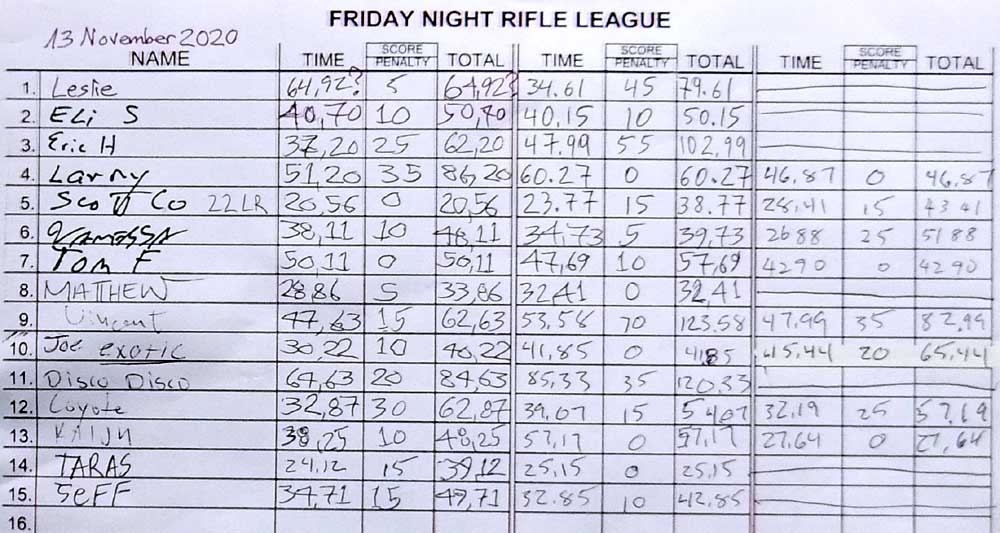 FRIDAY NIGHT RIFLE LEAGUE
13 November 2020
NAME TIME SCORE PENALTY TOTAL TIME SCORE PENALTY TOTAL TIME SCORE PENALTY TOTAL
1. Leslie 64,92? 5 64,92? 34.61 45 79.61
2. ELi S 40,70 10 50,70 40,15 10 50.15
3. Eric H 37,20 25 62,20 47.99 55 102,99
4. Larry 51,20 35 86,20 60.27 0 60.27 46,87 0 46,87
5. Scott Co 22LR 20,56 0 20,56 23.77 15 38.77 28,41 15 43 41
6. VANESSA 38,11 10 48,11 34,73 5 39,73 26 88 25 51 88
7. Tom F 50,11 0 50,11 47,69 10 57,69 42 90 0 42 90
8. MATTHEW 28,86 5 33,86 32,41 0 32,41
9. Vincent 47,63 15 62,63 53,58 70 123,58 47,99 35 82,99
10. Joe exotic 30,22 10 40,22 41,85 0 41,85 45,44 20 65,44
11. Disco Disco 64,63 20 84,63 85,33 35 120,33
12. Coyote 32,87 30 62,87 39,07 15 5 4,07 32,19 25 57,19
13. KAIJU 38,25 10 48,25 57,17 0 57,17 27,64 0 27,64
14. TARAS 24,12 15 39,12 25,15 0 25,15
15. JeFF 34,71 15 49,71 32.85 10 42,85
16.